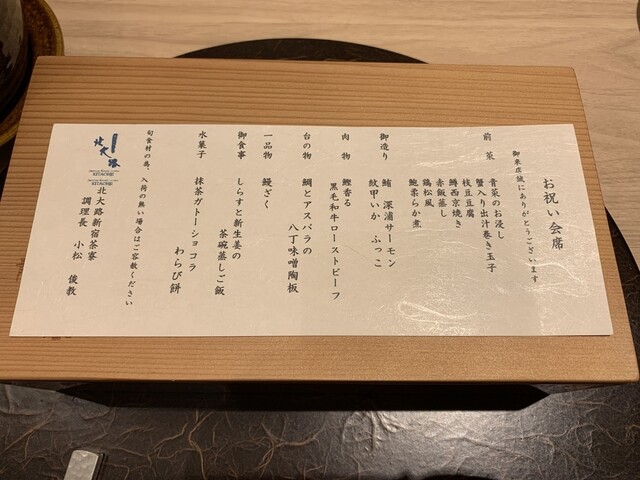 お祝い会席
御来店誠にありがとうございます
前菜 青菜のお浸し
蟹入り出汁巻き玉子
枝豆豆腐
鱒西京焼き
赤飯蒸し
鶏松風
鮑柔らか煮
御造り 鮪 深浦サーモン
紋甲いか ふっこ
肉物 鰹香る
黒毛和牛ローストビーフ
台の物 鯛とアスパラの
八丁味噌陶板
一品物 鰻ざく
御食事 しらすと新生姜の
茶碗蒸しご飯
水菓子 抹茶ガトーショコラ
わらび餅
旬食材の為、入荷の無い場合はご容赦ください
北大路
KITAOHJI
KITAOHJI
北大路新宿茶寮
調理長 小松 俊教